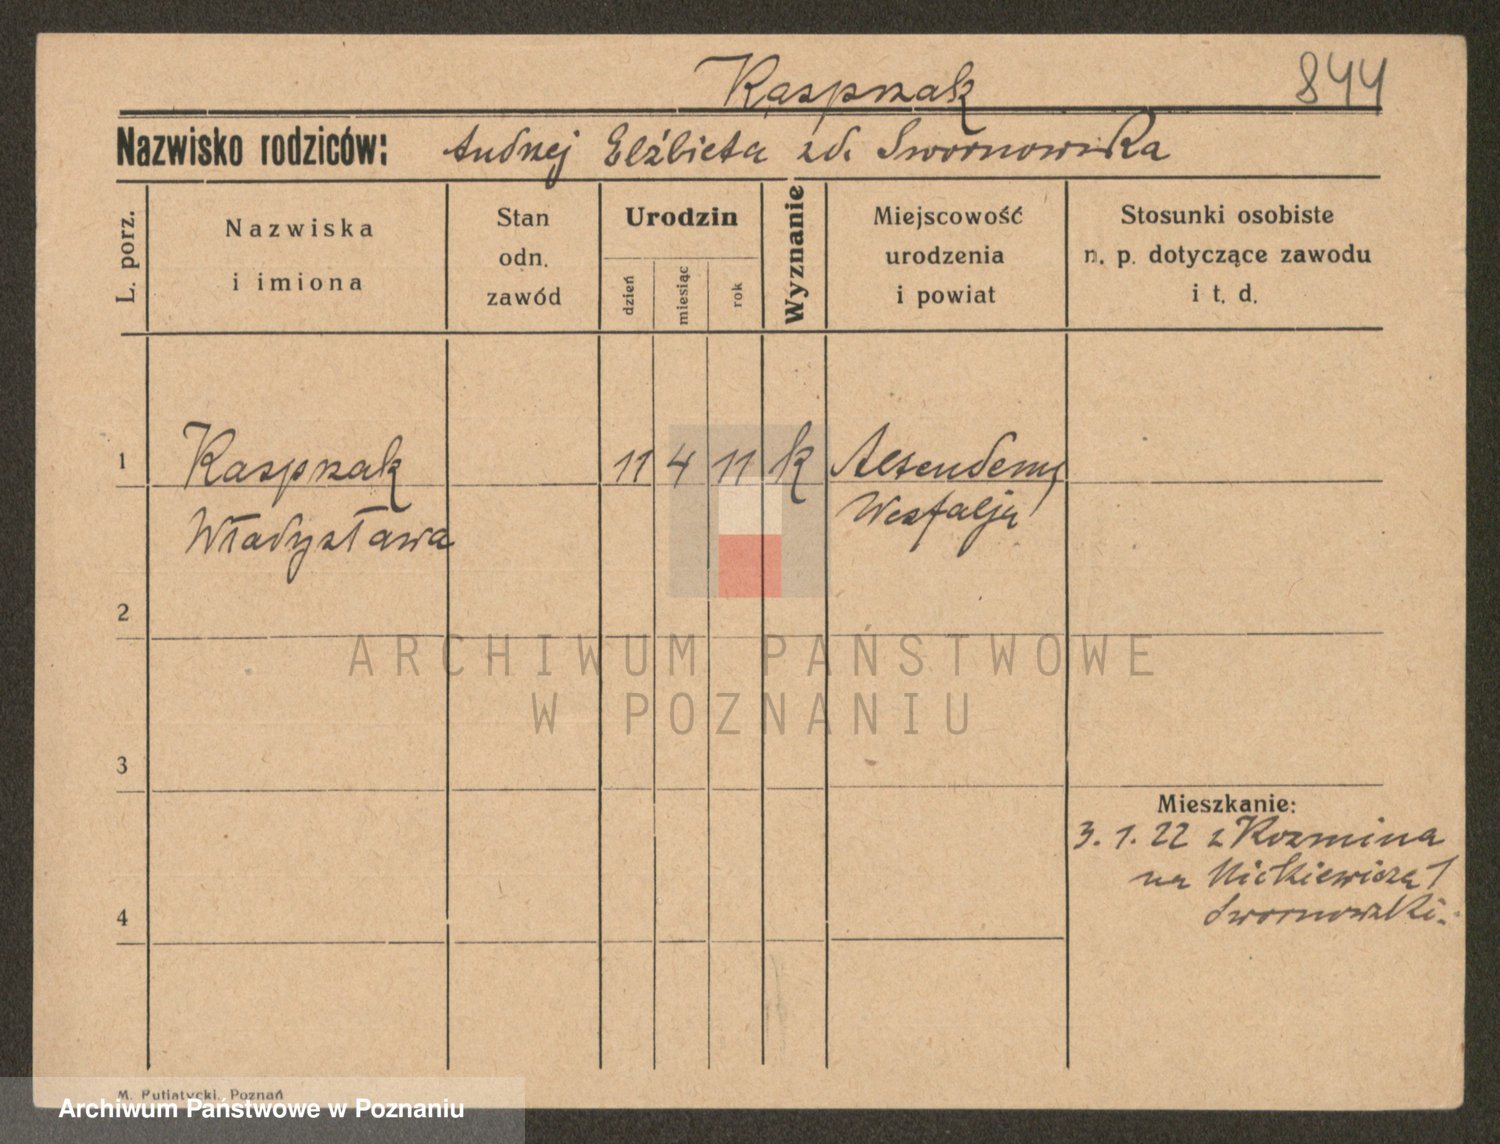 Kasprzak 844
Nazwisko rodziców: Andrzej Elżbieta zd. Swornowska
L. porz.
Nazwiska i imiona
Stan odn. zawód
Urodzin
dzień miesiąc rok
Wyznanie
Miejscowość urodzenia i powiat
Stosunki osobiste n. p. dotyczące zawodu i t. d.
1 Kasprzak 11 4 11 k
Władysława Westfalja
2
3
Mieszkanie:
3. 1. 22 z Kozmina
na Mickiewicza 1
Swornowski.
4
ARCHIWUM PAŃSTWOWE
W POZNANIU
M. Putiatycki, Poznań
Archiwum Państwowe w Poznaniu